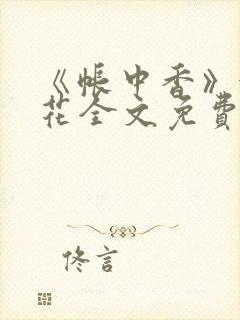 《帐中香》
花全文免費
佟言